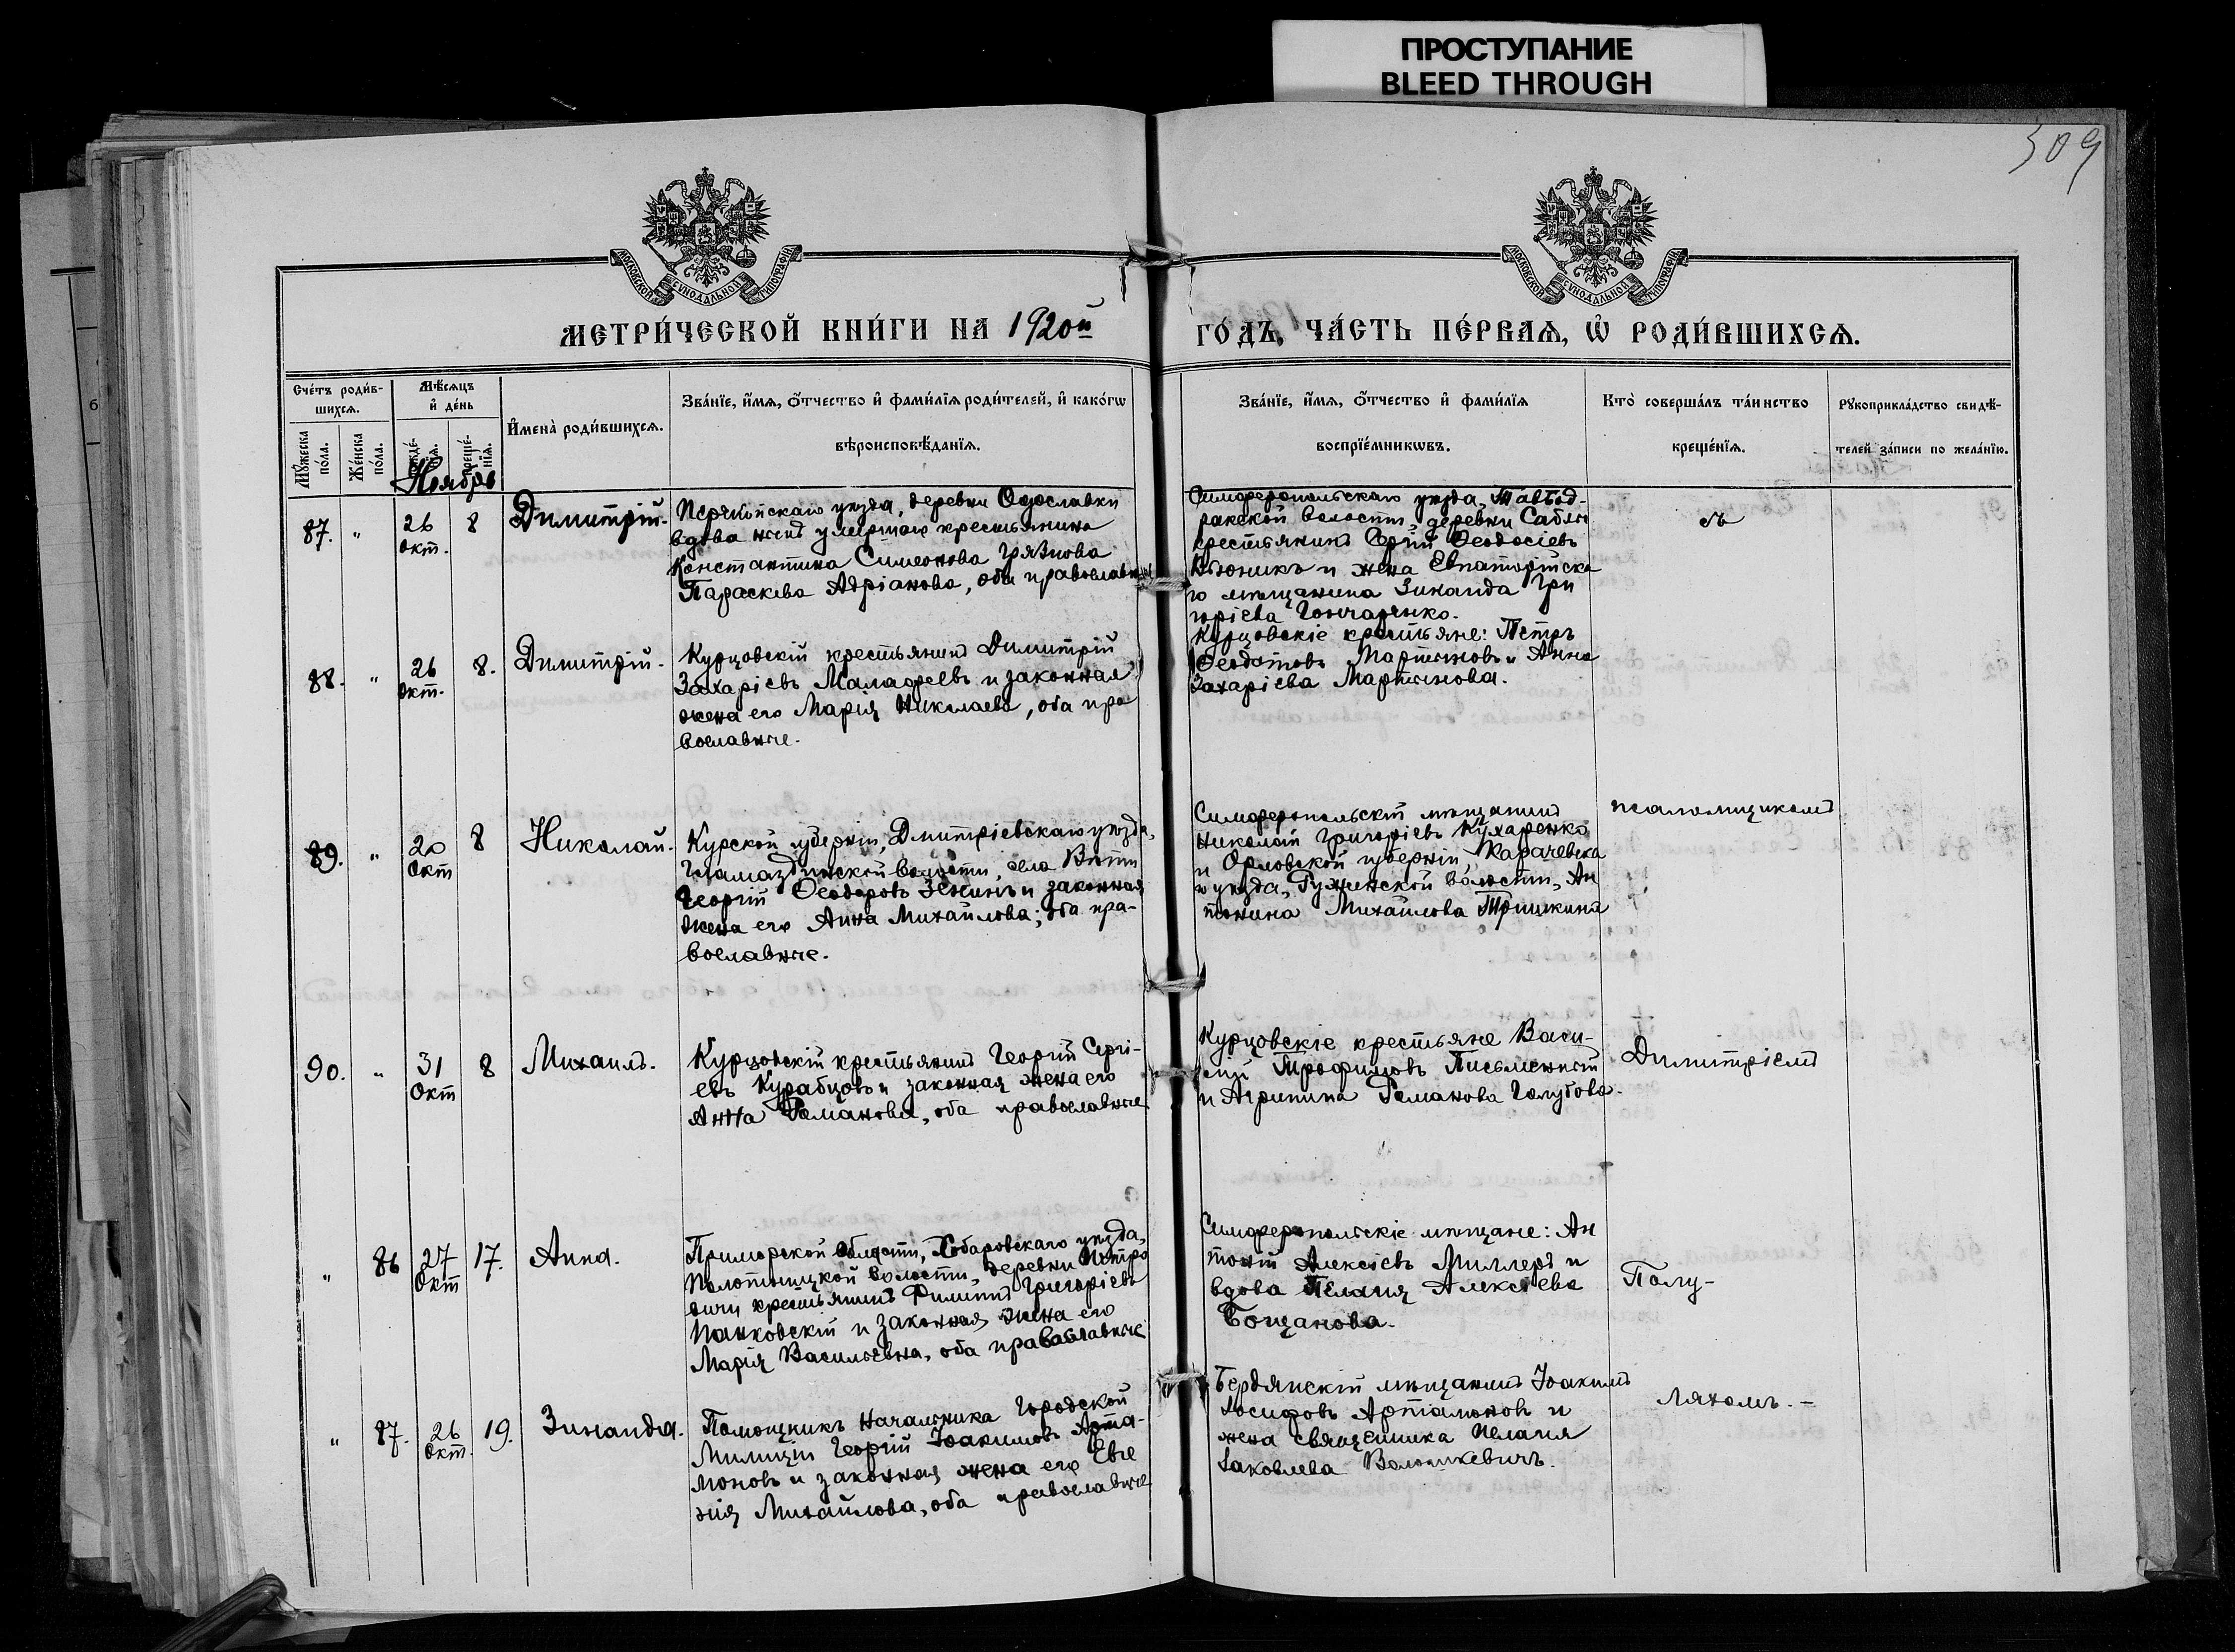 ПРОСТУПАНИЕ
BLEED THROUGH
309
МОСКОВСКОЙ СѴНОДАЛЬНОЙ ТИПОГРАФІИ
МОСКОВСКОЙ СѴНОДАЛЬНОЙ ТИПОГРАФІИ
МЕТРИ́ЧЕСКОЙ КНИ́ГИ НА 1920й ГО́ДЪ, ЧА́СТЬ ПЕ́РВАЯ, Ѿ РОДИ́ВШИХСЯ.
Сче́тъ роди́в-
шихся.
Му́жеска по́ла.
Же́нска по́ла.
Мѣ́сяцъ
и де́нь
креще́-
нїя.
Имена̀ роди́вшихся.
Зва́нїе, и́мя, о́тчество и фами́лїя роди́телей, и како́гѡ
вѣроисповѣ́данїя.
Зва́нїе, и́мя, о́тчество и фами́лїя
воспрїе́мникѡвъ.
Кто̀ соверша́лъ та́инство
креще́нїя.
Рꙋкоприкла́дство свидѣ́-
телей за́писи по жела́нїю.
Ноябрь
87. " 26 окт. 8 Димитрій.
уѣзда, деревни
вдова жена умершаго крестьянина
Константина Симеонова Грязнова
Параскева Адріанова, оба православн
Симферопольскаго уѣзда,
волости, деревни Сабли
крестьянинъ Сергій Ѳеодосіевъ
Вьюникъ и жена Евпаторійска
го мѣщанина Зинаида Гри
горіева Гончаренко.
съ
88. " 26 окт. 8. Димитрій.
Курцовскій крестьянинъ Димитрій
Захаріевъ Малафеевъ и законная
жена его Марія Николаева, оба пра
вославные.
Курцовскіе крестьяне: Петръ
Ѳеодотовъ Мартыновъ и Анна
Захаріева Мартынова.
89. " 20 Окт 8 Николай.
Курской губерніи, Дмитріевскаго уѣзда,
волости, села
Георгій Ѳеодоровъ Зенинъ и законная
жена его Анна Михайлова; оба пра-
вославные.
Симферопольскій мѣщанинъ
Николай Григоріевъ Кухаренко
и Орловской губерніи, Карачевска
го уѣзда, волости, Ан
тонина Михайлова Тришкина
псаломщикомъ
90. " 31 Окт 8 Михаилъ.
Курцовскій крестьянинъ Георгій Сергі-
евъ Курабцовъ и законная жена его
Анна Романова, оба православные
Курцовскіе крестьяне Васи-
лій Трофимовъ Письменный
и Агрипина Романова Голубова.
Димитріемъ
" 86 27 Окт 17. Анна.
Приморской области, Хобаровскаго уѣзда,
волости, деревни Петро
вичи крестьянинъ Филиппъ Григоріевъ
Панковскій и законная жена его
Марія Васильевна, оба православные
Симферопольскіе мѣщане: Ан
тоній Алексіевъ Миллеръ и
вдова Пелагія Алексѣева
Бощанова.
Полу-
" 87. 26 окт. 19. Зинаида.
Помощникъ Начальника Городской
Милиціи Георгій Іоакимовъ Арта-
моновъ и законная жена его Евге
нія Михайлова, оба православные
Бердянскій мѣщанинъ Іоакимъ
Іосифовъ Артамоновъ и
жена священника Пелагія
Іаковлева Волошкевичъ.
ляхомъ. -